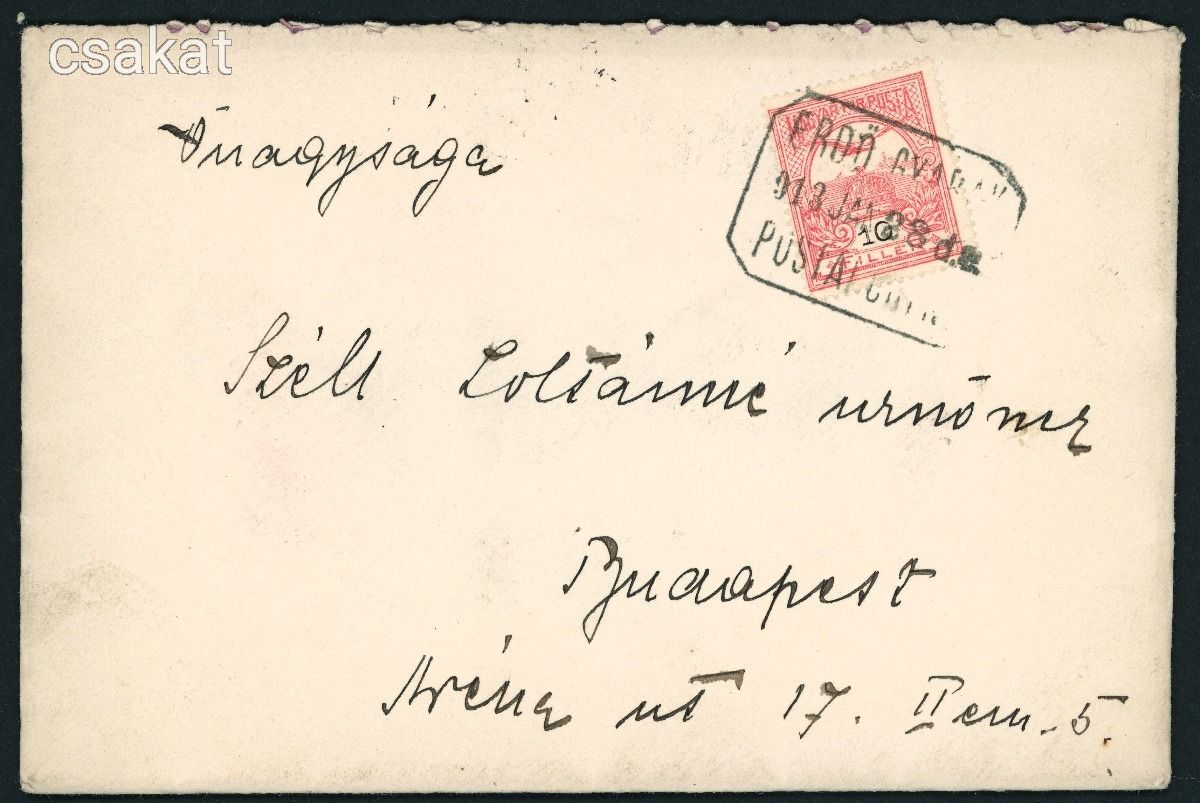 csakat
Őnagysága
MAGYAR POSTA
ERDŐ
913 JAN 28 d.e.
10
FILLÉR
Széll Zoltánné urnőnek
Budapest
Aréna ut 17. II em. 5.